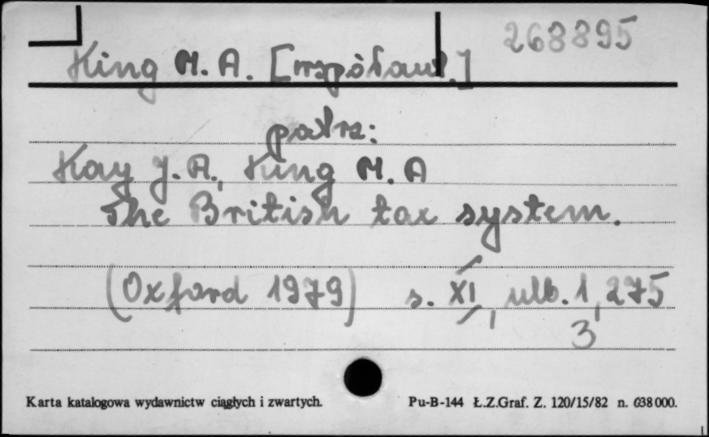 268895
King M. A. [współaut.]
patrz:
Kay J. A., King M. A
The British tax system.
(Oxford 1979) s. XI, ulb. 1, 275, 3
Karta katalogowa wydawnictw ciągłych i zwartych. Pu-B-144 Ł.Z.Graf. Z. 120/15/82 n. 638000.